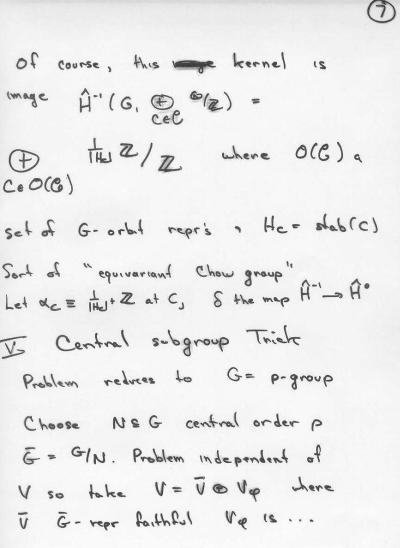 7
Of course, this kernel is
image Ĥ⁻¹(G, ⊕ ℚ/ℤ) =
C∈𝒞
⊕ 1/|Hc| ℤ/ℤ where O(𝒞) a
C∈O(𝒞)
set of G-orbit repr's, Hc = stab(C)
Sort of "equivariant Chow group"
Let αc ≡ 1/|Hc| + ℤ at C, δ the map Ĥ⁻¹ → Ĥ⁰
V. Central subgroup Trick
Problem reduces to G = p-group
Choose N ≤ G central order p
Ḡ = G/N. Problem independent of
V so take V = V̄ ⊕ Vφ where
V̄ Ḡ-repr faithful Vφ is ...